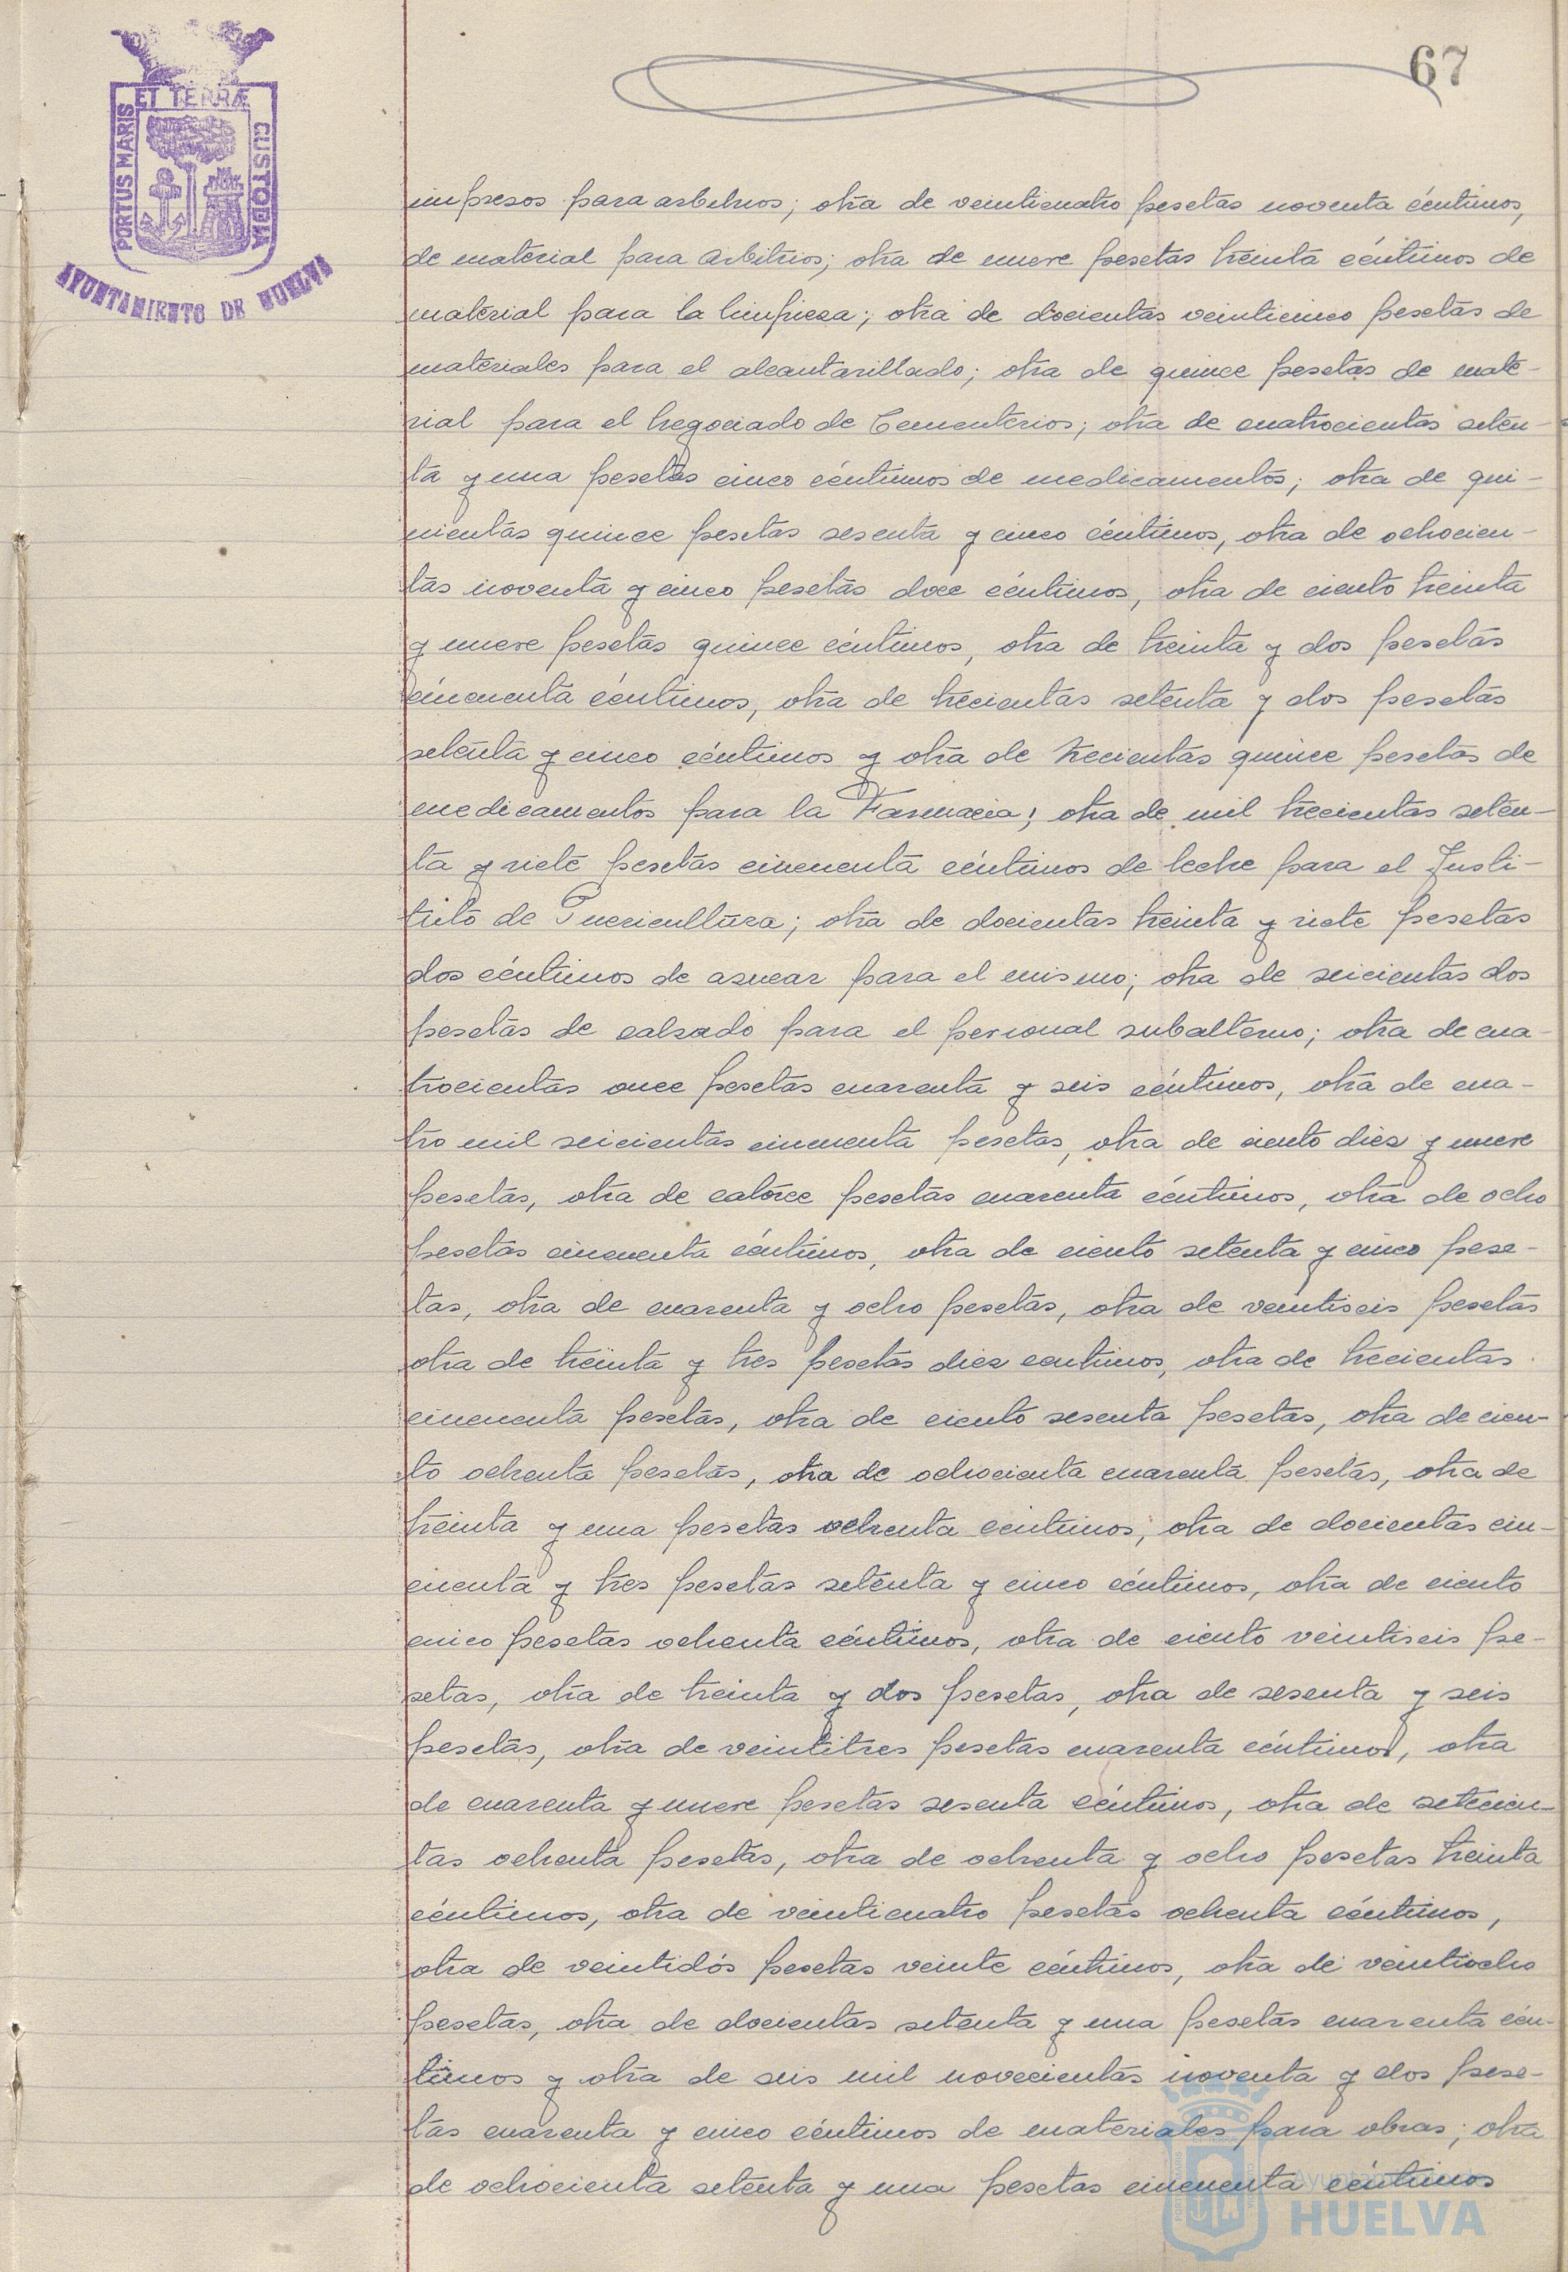 67
ET TERRÆ
PORTUS MARIS
CUSTODIA
AYUNTAMIENTO DE HUELVA
impresos para arbitrios; otra de veinticuatro pesetas noventa céntimos,
de material para arbitrios; otra de nueve pesetas treinta céntimos de
material para la limpieza; otra de docientas veinticinco pesetas de
materiales para el alcantarillado; otra de quince pesetas de mate-
rial para el Negociado de Cementerios; otra de cuatrocientas seten-
ta y una pesetas cinco céntimos de medicamentos; otra de qui-
nientas quince pesetas sesenta y cinco céntimos, otra de ochocien-
tas noventa y cinco pesetas doce céntimos, otra de ciento treinta
y nueve pesetas quince céntimos, otra de treinta y dos pesetas
cincuenta céntimos, otra de trecientas setenta y dos pesetas
setenta y cinco céntimos y otra de trecientas quince pesetas de
medicamentos para la Farmacia; otra de mil trecientas seten-
ta y siete pesetas cincuenta céntimos de leche para el Insti-
tuto de Puericultura; otra de docientas treinta y siete pesetas
dos céntimos de azucar para el mismo; otra de seicientas dos
pesetas de calzado para el personal subalterno; otra de cua-
trocientas once pesetas cuarenta y seis céntimos, otra de cua-
tro mil seicientas cincuenta pesetas, otra de ciento diez y nueve
pesetas, otra de catorce pesetas cuarenta céntimos, otra de ocho
pesetas cincuenta céntimos, otra de ciento setenta y cinco pese-
tas, otra de cuarenta y ocho pesetas, otra de veintiseis pesetas
otra de treinta y tres pesetas diez centimos, otra de trecientas
cincuenta pesetas, otra de ciento sesenta pesetas, otra de cien-
to ochenta pesetas, otra de ochocienta cuarenta pesetas, otra de
treinta y una pesetas ochenta centimos, otra de docientas cin-
cuenta y tres pesetas setenta y cinco céntimos, otra de ciento
cinco pesetas ochenta céntimos, otra de ciento veintiseis pe-
setas, otra de treinta y dos pesetas, otra de sesenta y seis
pesetas, otra de veintitres pesetas cuarenta céntimos, otra
de cuarenta y nueve pesetas sesenta céntimos, otra de setecien-
tas ochenta pesetas, otra de ochenta y ocho pesetas treinta
céntimos, otra de veinticuatro pesetas ochenta céntimos,
otra de veintidós pesetas veinte céntimos, otra de veintiocho
pesetas, otra de docientas setenta y una pesetas cuarenta cén-
timos y otra de seis mil novecientas noventa y dos pese-
tas cuarenta y cinco céntimos de materiales para obras; otra
de ochocienta setenta y una pesetas cincuenta céntimos
HUELVA